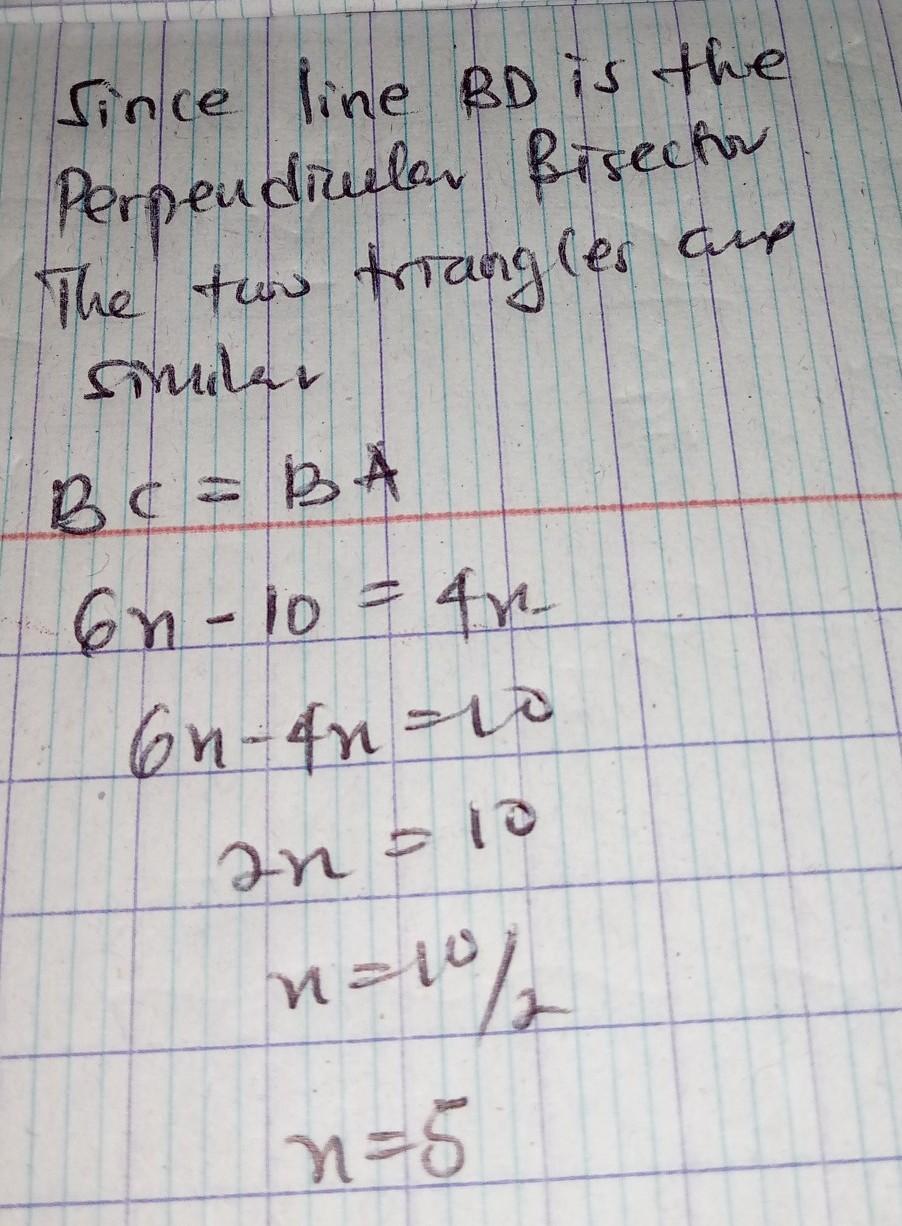 Since line BD is the
Perpendicular Bisector
The two triangles are
similar
BC = BA
6n - 10 = 4n
6n - 4n = 10
2n = 10
n = 10/2
n = 5